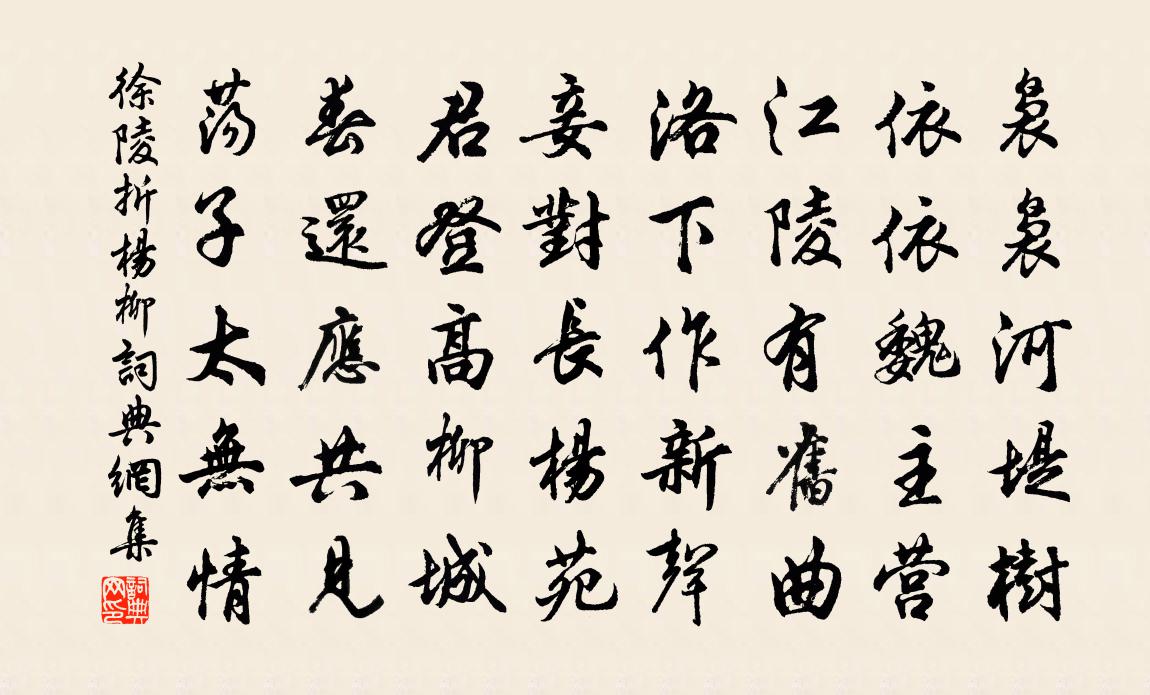 裊裊河堤樹
依依魏主营
江陵有舊曲
洛下作新聲
妾對長楊苑
君登高柳城
春還應共見
蕩子太無情
徐陵折楊柳詞典網集
詞典網印